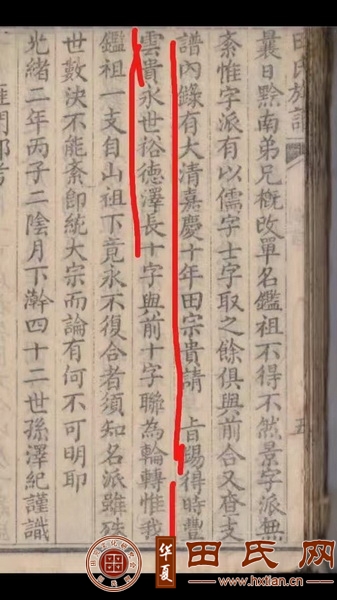 田氏族譜
曩日黔南弟兄概改單名鑑祖不得不然景字派無
紊惟字派有以儒字士字取之餘俱與前合又查支
譜內錄有大清嘉慶十年田宗貴請 旨錫得時豐
雲貴永世裕德澤長十字與前十字聯為輪轉惟我
鑑祖一支自山祖下竟永不復合者須知名派雖殊
世數決不能紊即統大宗而論有何不可明耶
光緒二年丙子二陰月下澣四十二世孫澤紀謹識
雁門郡
五
华夏
田氏网
www.hxtian.cn